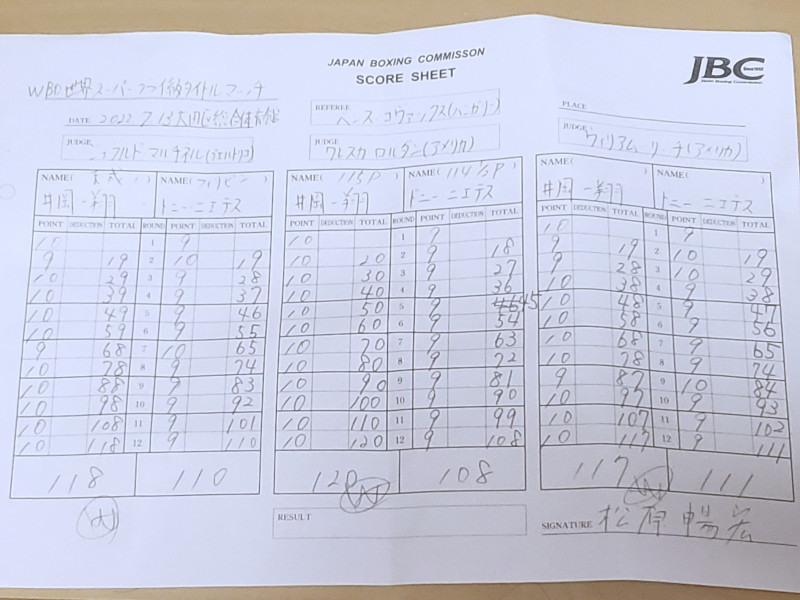 JAPAN BOXING COMMISSON
SCORE SHEET
JBC
Since 1952
WBO世界スーパーフライ級タイトルマッチ
DATE 2022 7/13 大田区総合体育館
REFEREE
PLACE
JUDGE
JUDGE ワレスカ ロルダン(アメリカ)
JUDGE ウィリアム リーチ(アメリカ)
NAME( ) NAME(フィリピン) NAME( 115P ) NAME( 114 1/2P ) NAME( ) NAME( )
井岡 一翔 ドニー ニエテス 井岡 一翔 ドニー ニエテス 井岡 一翔 ドニー ニエテス
POINT DEDUCTION TOTAL ROUND POINT DEDUCTION TOTAL POINT DEDUCTION TOTAL ROUND POINT DEDUCTION TOTAL POINT DEDUCTION TOTAL ROUND POINT DEDUCTION TOTAL
10 1 9 10 1 9 10 1 9
9 19 2 10 19 10 20 2 9 18 9 19 2 10 19
10 29 3 9 28 10 30 3 9 27 9 28 3 10 29
10 39 4 9 37 10 40 4 9 36 10 38 4 9 38
10 49 5 9 46 10 50 5 9 45 10 48 5 9 47
10 59 6 9 55 10 60 6 9 54 10 58 6 9 56
9 68 7 10 65 10 70 7 9 63 10 68 7 9 65
10 78 8 9 74 10 80 8 9 72 10 78 8 9 74
10 88 9 9 83 10 90 9 9 81 9 87 9 10 84
10 98 10 9 92 10 100 10 9 90 10 97 10 9 93
10 108 11 9 101 10 110 11 9 99 10 107 11 9 102
10 118 12 9 110 10 120 12 9 108 10 117 12 9 111
118 110 120 108 117 111
W W W
RESULT
SIGNATURE 松原 暢宏